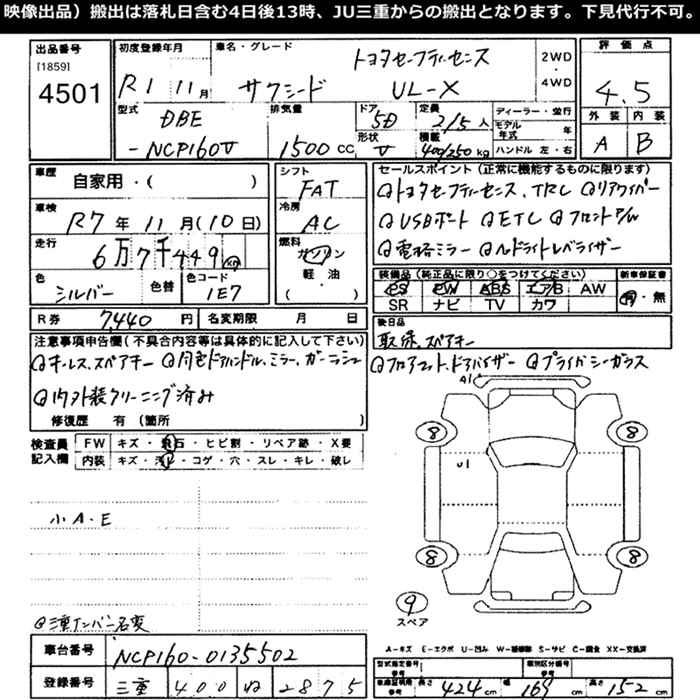 映像出品）搬出は落札日含む4日後13時、JU三重からの搬出となります。下見代行不可。
出品番号
[1859]
4501
初度登録年月
R1 11月
車名・グレード
トヨタセーフティーセンス
サクシード UL-X
2WD
・
4WD
評価点
4.5
外装 内装
A B
型式
DBE
-NCP160V
排気量
1500 CC
ドア
5D
形状
V
定員
2/5人
積載
400/250kg
ディーラー・並行
モデル年式 年
ハンドル 左・右
車歴
自家用・( )
車検
R7年11月(10日)
走行
6万7千449km
色
シルバー
色替
色コード
1E7
シフト
FAT
冷房
AC
燃料
ガソリン
軽・油
( )
セールスポイント（正常に機能するものに限ります）
トヨタセーフティーセンス、TRC リアワイパー
USBポート ETC フロントP/W
電格ミラー ヘッドライトレベライザー
装備品（純正品に限り○をつけてください）
PS PW ABS エアB AW
SR ナビ TV カワ
新車保証書
有・無
R券 7,440円
名変期限 月 日
後日品
取保、スペアキー
注意事項申告欄（不具合内容等は具体的に記入して下さい）
キーレス、スペアキー 同色ドアハンドル、ミラー、ガーニッシュ
内外装クリーニング済み
修復歴 有（箇所 ）
フロアマット、ドアバイザー プライバシーガラス
検査員記入欄
FW キズ・飛石・ヒビ割・リペア跡・X要
内装 キズ・汚れ・コゲ・穴・スレ・キレ・破レ
小A・E
三重ナンバー名変
A1
U1
8
8
8
8
9
スペア
A-キズ E-エクボ U-凹み W-補修跡 S-サビ C-腐食 XX-交換済
車台番号 NCP160-0135502
登録番号 三重 400 ね 2875
型式指定番号
参考
類別区分番号
参考
車検証明用
参考
長さ 424cm
幅 169cm
高さ 152cm